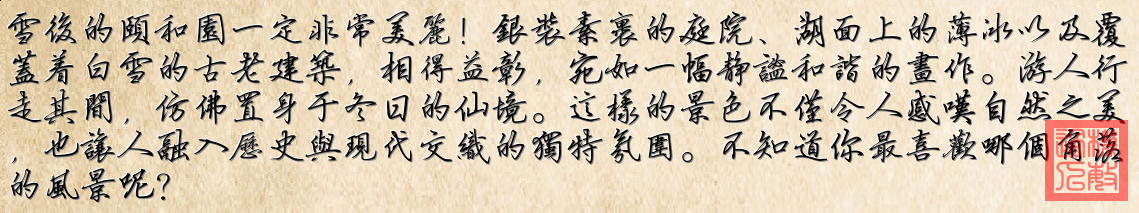 雪後的頤和園一定非常美麗！銀裝素裹的庭院、湖面上的薄冰以及覆
蓋着白雪的古老建築，相得益彰，宛如一幅靜謐和諧的畫作。游人行
走其間，仿佛置身于冬日的仙境。這樣的景色不僅令人感嘆自然之美
，也讓人融入歷史與現代交織的獨特氛圍。不知道你最喜歡哪個角落
的風景呢？